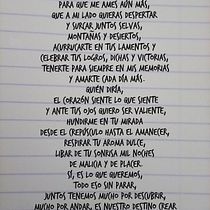 PARA QUE ME AMES AÚN MÁS,
QUE A MI LADO QUIERAS DESPERTAR
Y SURCAR JUNTOS SELVAS,
MONTAÑAS Y DESIERTOS,
ACURRUCARTE EN TUS LAMENTOS Y
CELEBRAR TUS LOGROS, DICHAS Y VICTORIAS,
TENERTE PARA SIEMPRE EN MIS MEMORIAS
Y AMARTE CADA DÍA MÁS.
QUIÉN DIRÍA,
EL CORAZÓN SIENTE LO QUE SIENTE
Y ANTE TUS OJOS QUIERO SER VALIENTE,
HUNDIRME EN TU MIRADA
DESDE EL CREPÚSCULO HASTA EL AMANECER,
RESPIRAR TU AROMA DULCE,
LIBAR DE TU SONRISA MIL NOCHES
DE MALICIA Y DE PLACER.
SÍ, ES LO QUE QUEREMOS,
TODO ESO SIN PARAR,
JUNTOS TENEMOS MUCHO POR DESCUBRIR,
MUCHO POR ANDAR, ES NUESTRO DESTINO CREAR